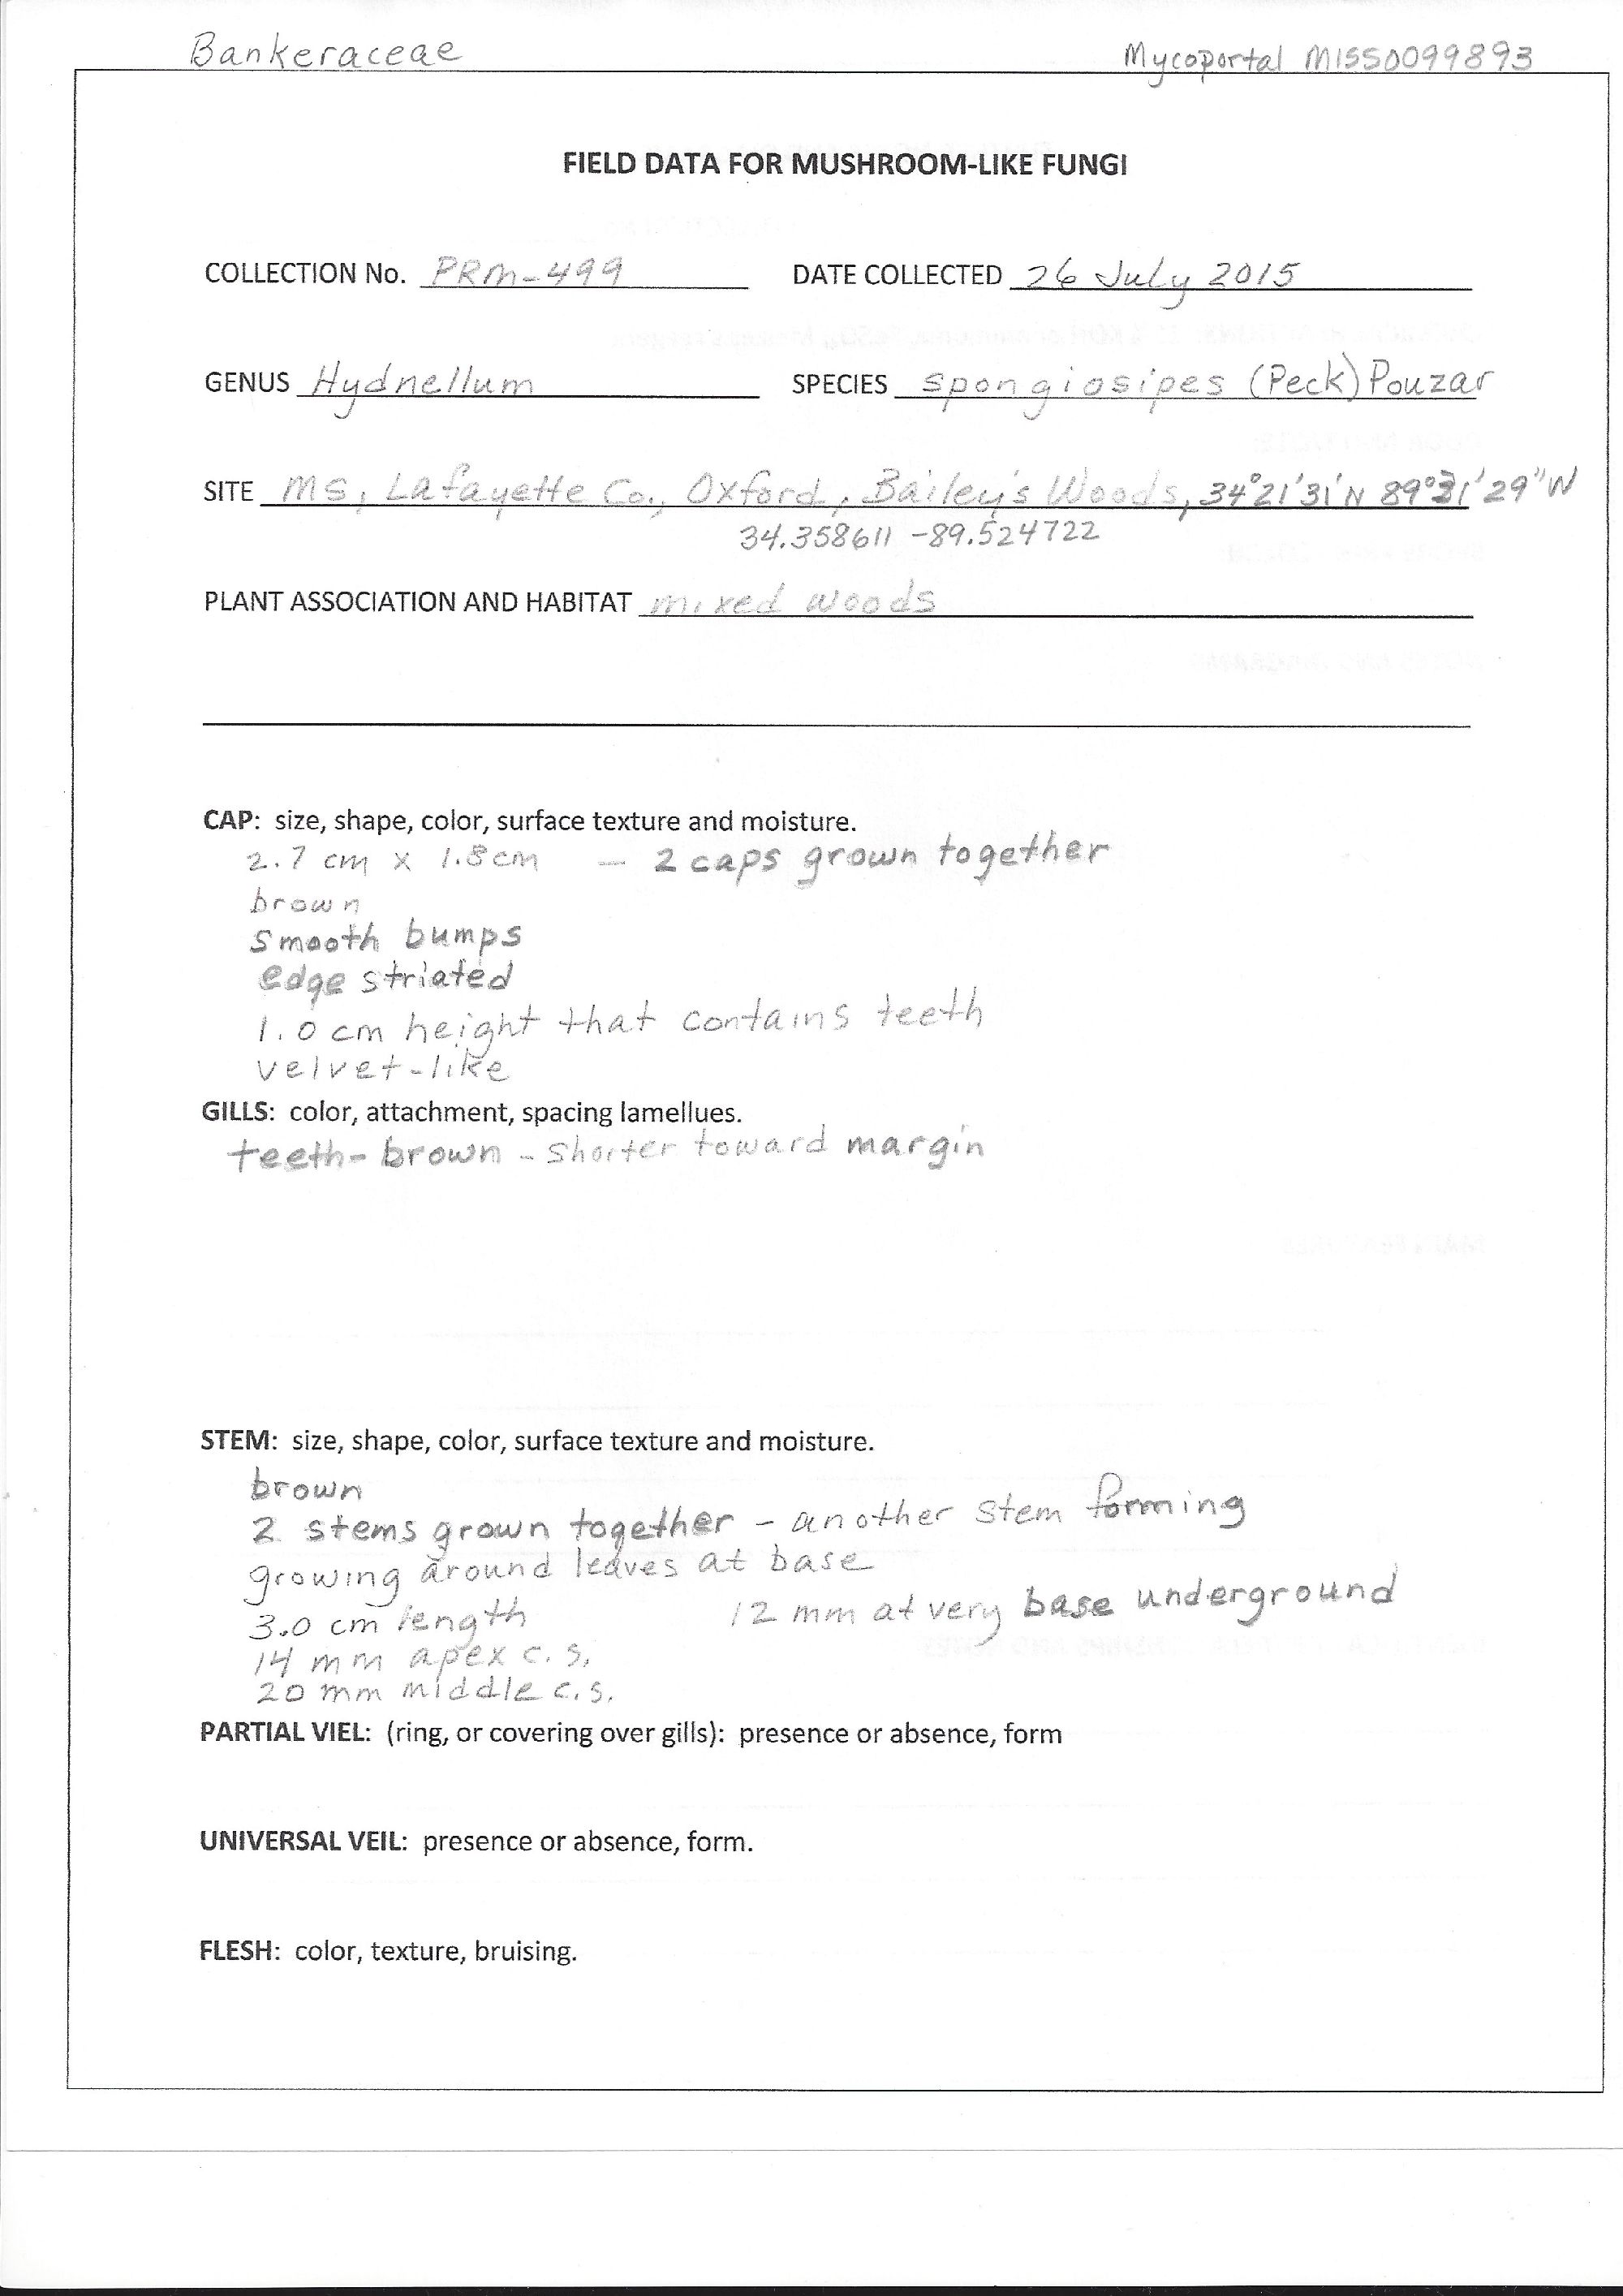 Bankeraceae Mycoportal MISS0099893
FIELD DATA FOR MUSHROOM-LIKE FUNGI
COLLECTION No. PRM-499 DATE COLLECTED 26 July 2015
GENUS Hydnellum SPECIES spongiosipes (Peck) Pouzar
SITE MS, Lafayette Co., Oxford, Bailey's Woods, 34°21'31'N 89°31'29"W
34.358611 -89.524722
PLANT ASSOCIATION AND HABITAT mixed woods
CAP: size, shape, color, surface texture and moisture.
2.7 cm x 1.8cm — 2 caps grown together
brown
smooth bumps
edge striated
1.0 cm height that contains teeth
velvet-like
GILLS: color, attachment, spacing lamellues.
teeth- brown - shorter toward margin
STEM: size, shape, color, surface texture and moisture.
brown
2 stems grown together - another stem forming
growing around leaves at base
3.0 cm length 12 mm at very base underground
14 mm apex c.s.
20 mm middle c.s.
PARTIAL VIEL: (ring, or covering over gills): presence or absence, form
UNIVERSAL VEIL: presence or absence, form.
FLESH: color, texture, bruising.